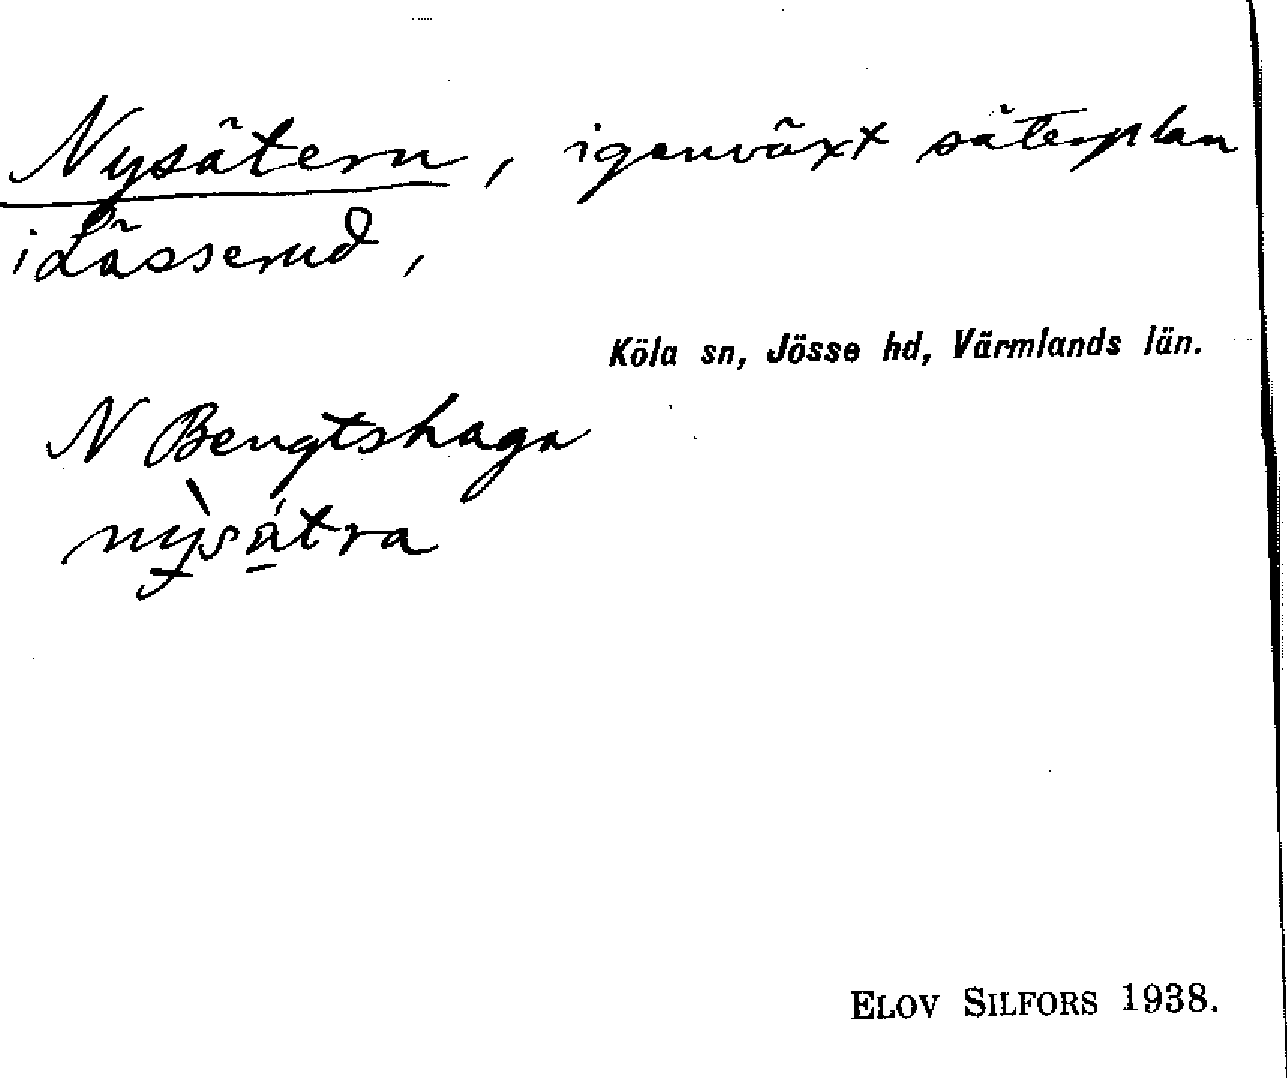 Nysätern, igenväxt säterplan
i Lässerud,
Köla sn, Jösse hd, Värmlands län.
N Bengtshaga
nỳ̱sá̱tra
ELOV SILFORS 1938.